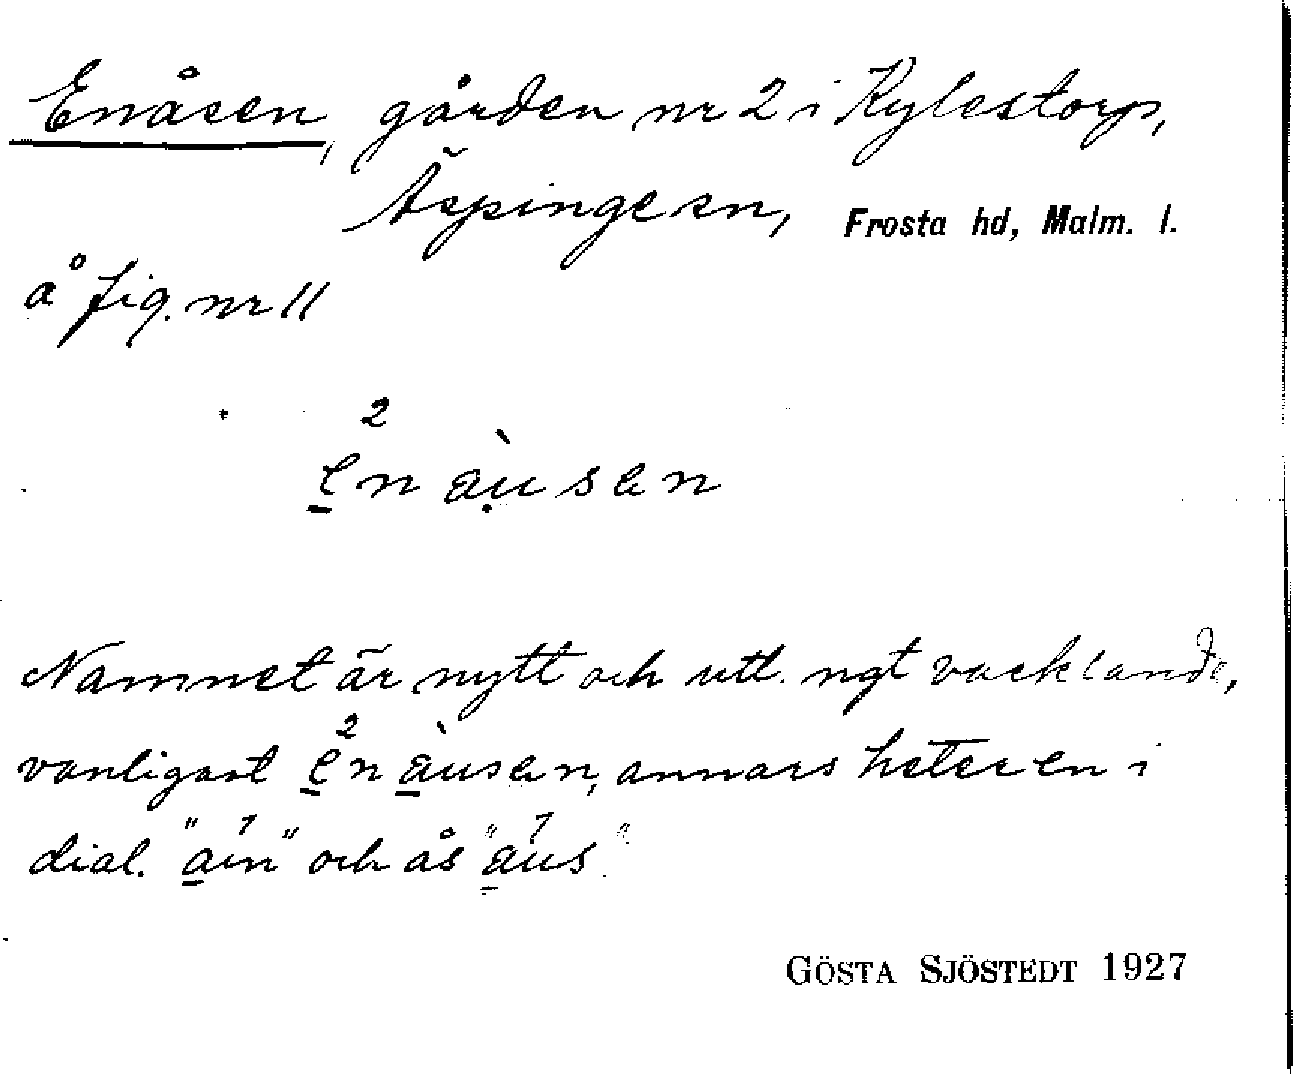 Enåsen, gården nr 2 i Kylestorp,
Äspinge sn, Frosta hd, Malm. l.
å fig. nr 11
2
e̱nàu̩sen
Namnet är nytt och utt. ngt vacklande,
vanligast e̱²nà̱usen, annars heter en i
dial. "a̱in" och ås "a̱us".
GÖSTA SJÖSTEDT 1927